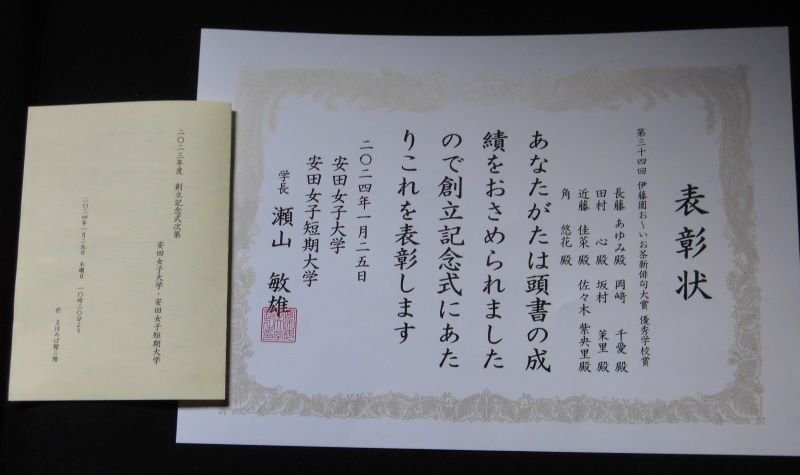 表彰状
第三十四回 伊藤園お～いお茶新俳句大賞 優秀学校賞
長藤 あゆみ殿 岡﨑 千愛 殿
田村 心 殿 坂村 茉里 殿
近藤 佳菜 殿 佐々木 紫央里 殿
角 悠花 殿
あなたがたは頭書の成
績をおさめられました
ので創立記念式にあた
りこれを表彰します
二〇二四年一月二五日
安田女子大学
安田女子短期大学
学長 瀬山 敏雄
二〇二三年度 創立記念式次第
安田女子大学・安田女子短期大学
二〇二四年一月二五日 木曜日 一〇時三〇分より
於 まほろば館三階